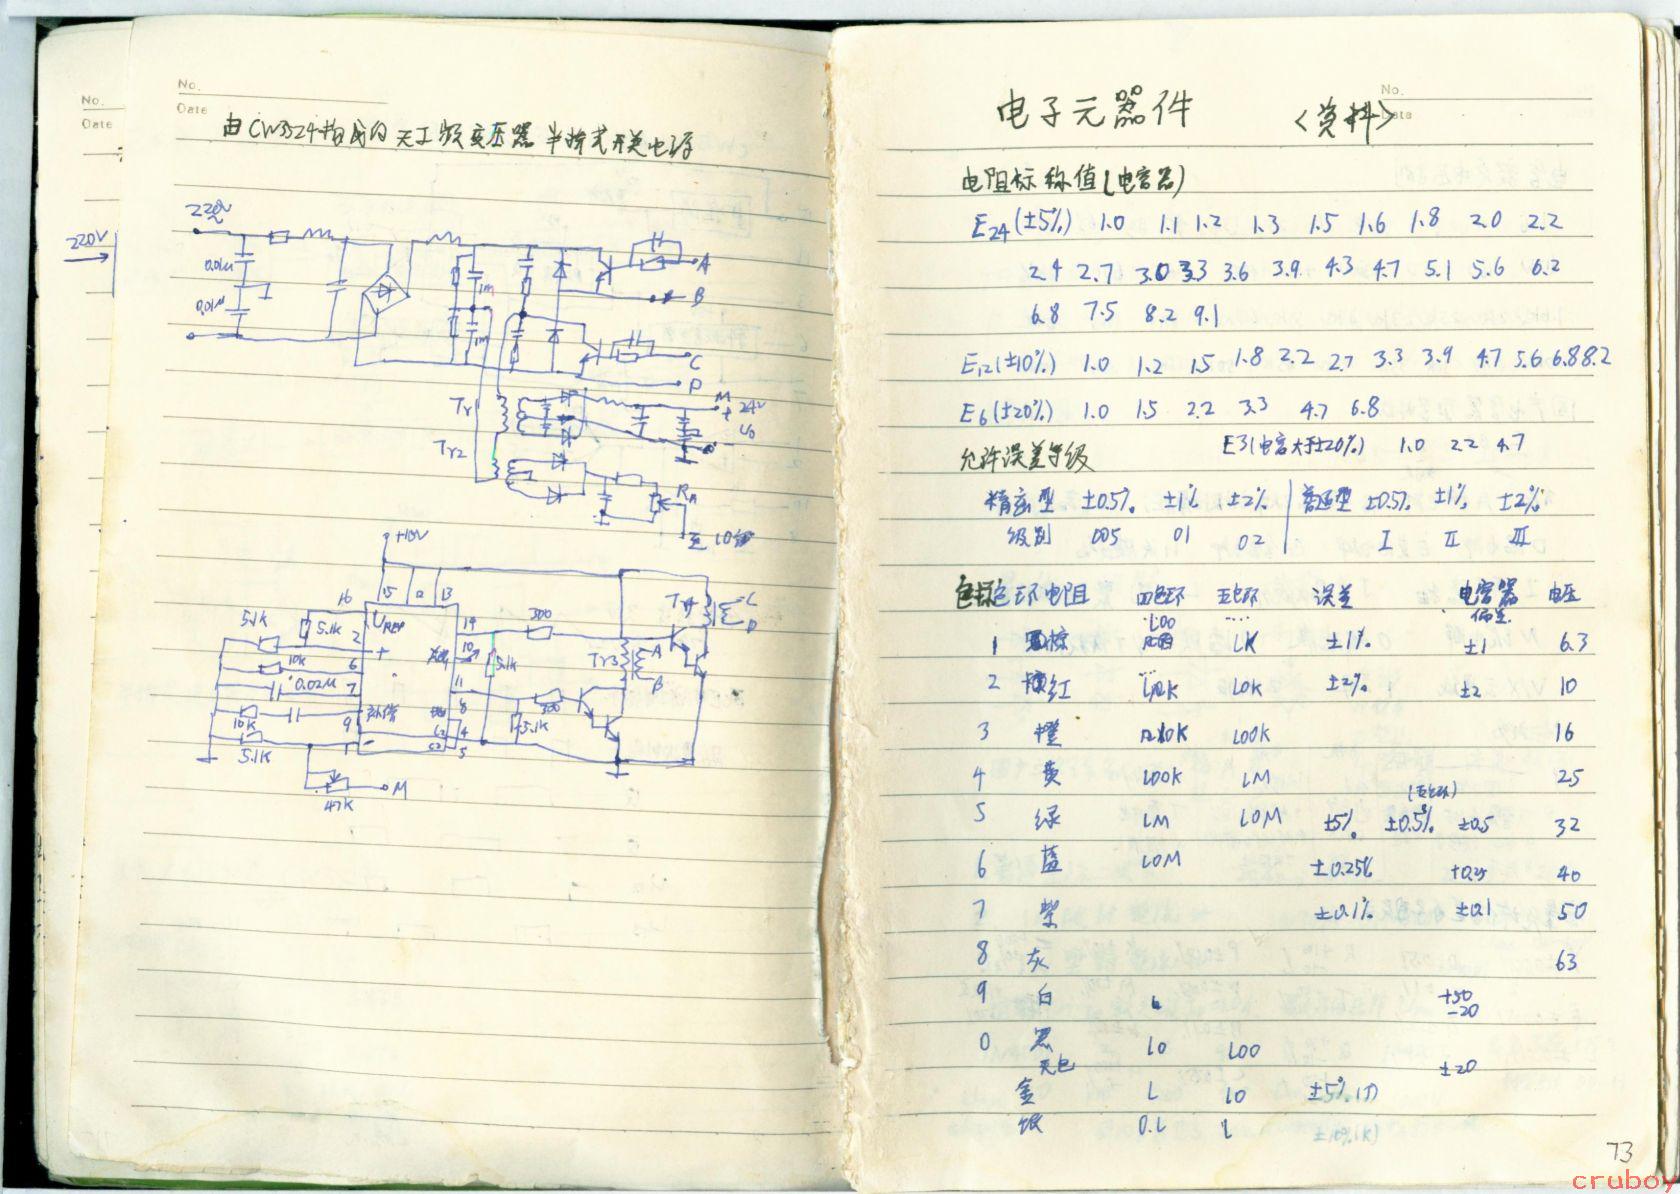 No.
Date
No.
Date
由CW3524构成的无工频变压器半桥式开关电源
220V
220V
0.01μ
0.01μ
1m
1m
A
B
C
D
Tr1
M
+
24V
U0
-
Tr2
RA
至10脚
+15V
15 12 13
16
UREF
14
5.1K
5.1K
2
+
300
Tr4
C
D
10
5.1K
10K
6
Tr3
A
B
0.02M
7
11
8
300
5.1K
10K
9
补偿
4
5.1K
1
-
5
47K
M
No.
Date
电子元器件
<资料>
电阻标称值(电容器)
E24(±5%) 1.0 1.1 1.2 1.3 1.5 1.6 1.8 2.0 2.2
2.4 2.7 3.0 3.3 3.6 3.9 4.3 4.7 5.1 5.6 6.2
6.8 7.5 8.2 9.1
E12(±10%) 1.0 1.2 1.5 1.8 2.2 2.7 3.3 3.9 4.7 5.6 6.8 8.2
E6(±20%) 1.0 1.5 2.2 3.3 4.7 6.8
E3(电容大于±20%) 1.0 2.2 4.7
允许误差等级
精密型 ±0.5% ±1% ±2% 普通型 ±0.5% ±1% ±2%
级别 005 01 02 I II III
色环电阻 四色环 五色环 误差 电容器偏差 电压
1 棕 100 1K ±1% ±1 6.3
2 红 1K 10K ±2% ±2 10
3 橙 10K 100K 16
4 黄 100K 1M 25
(五色环)
5 绿 1M 10M ±5% ±0.5% ±0.5 32
6 蓝 10M ±0.25% ±0.25 40
7 紫 ±0.1% ±0.1 50
8 灰 63
9 白 +50 -20
0 黑 10 100
无色 ±20
金 1 10 ±5%(J)
银 0.1 1 ±10%(K)
73
cruboy